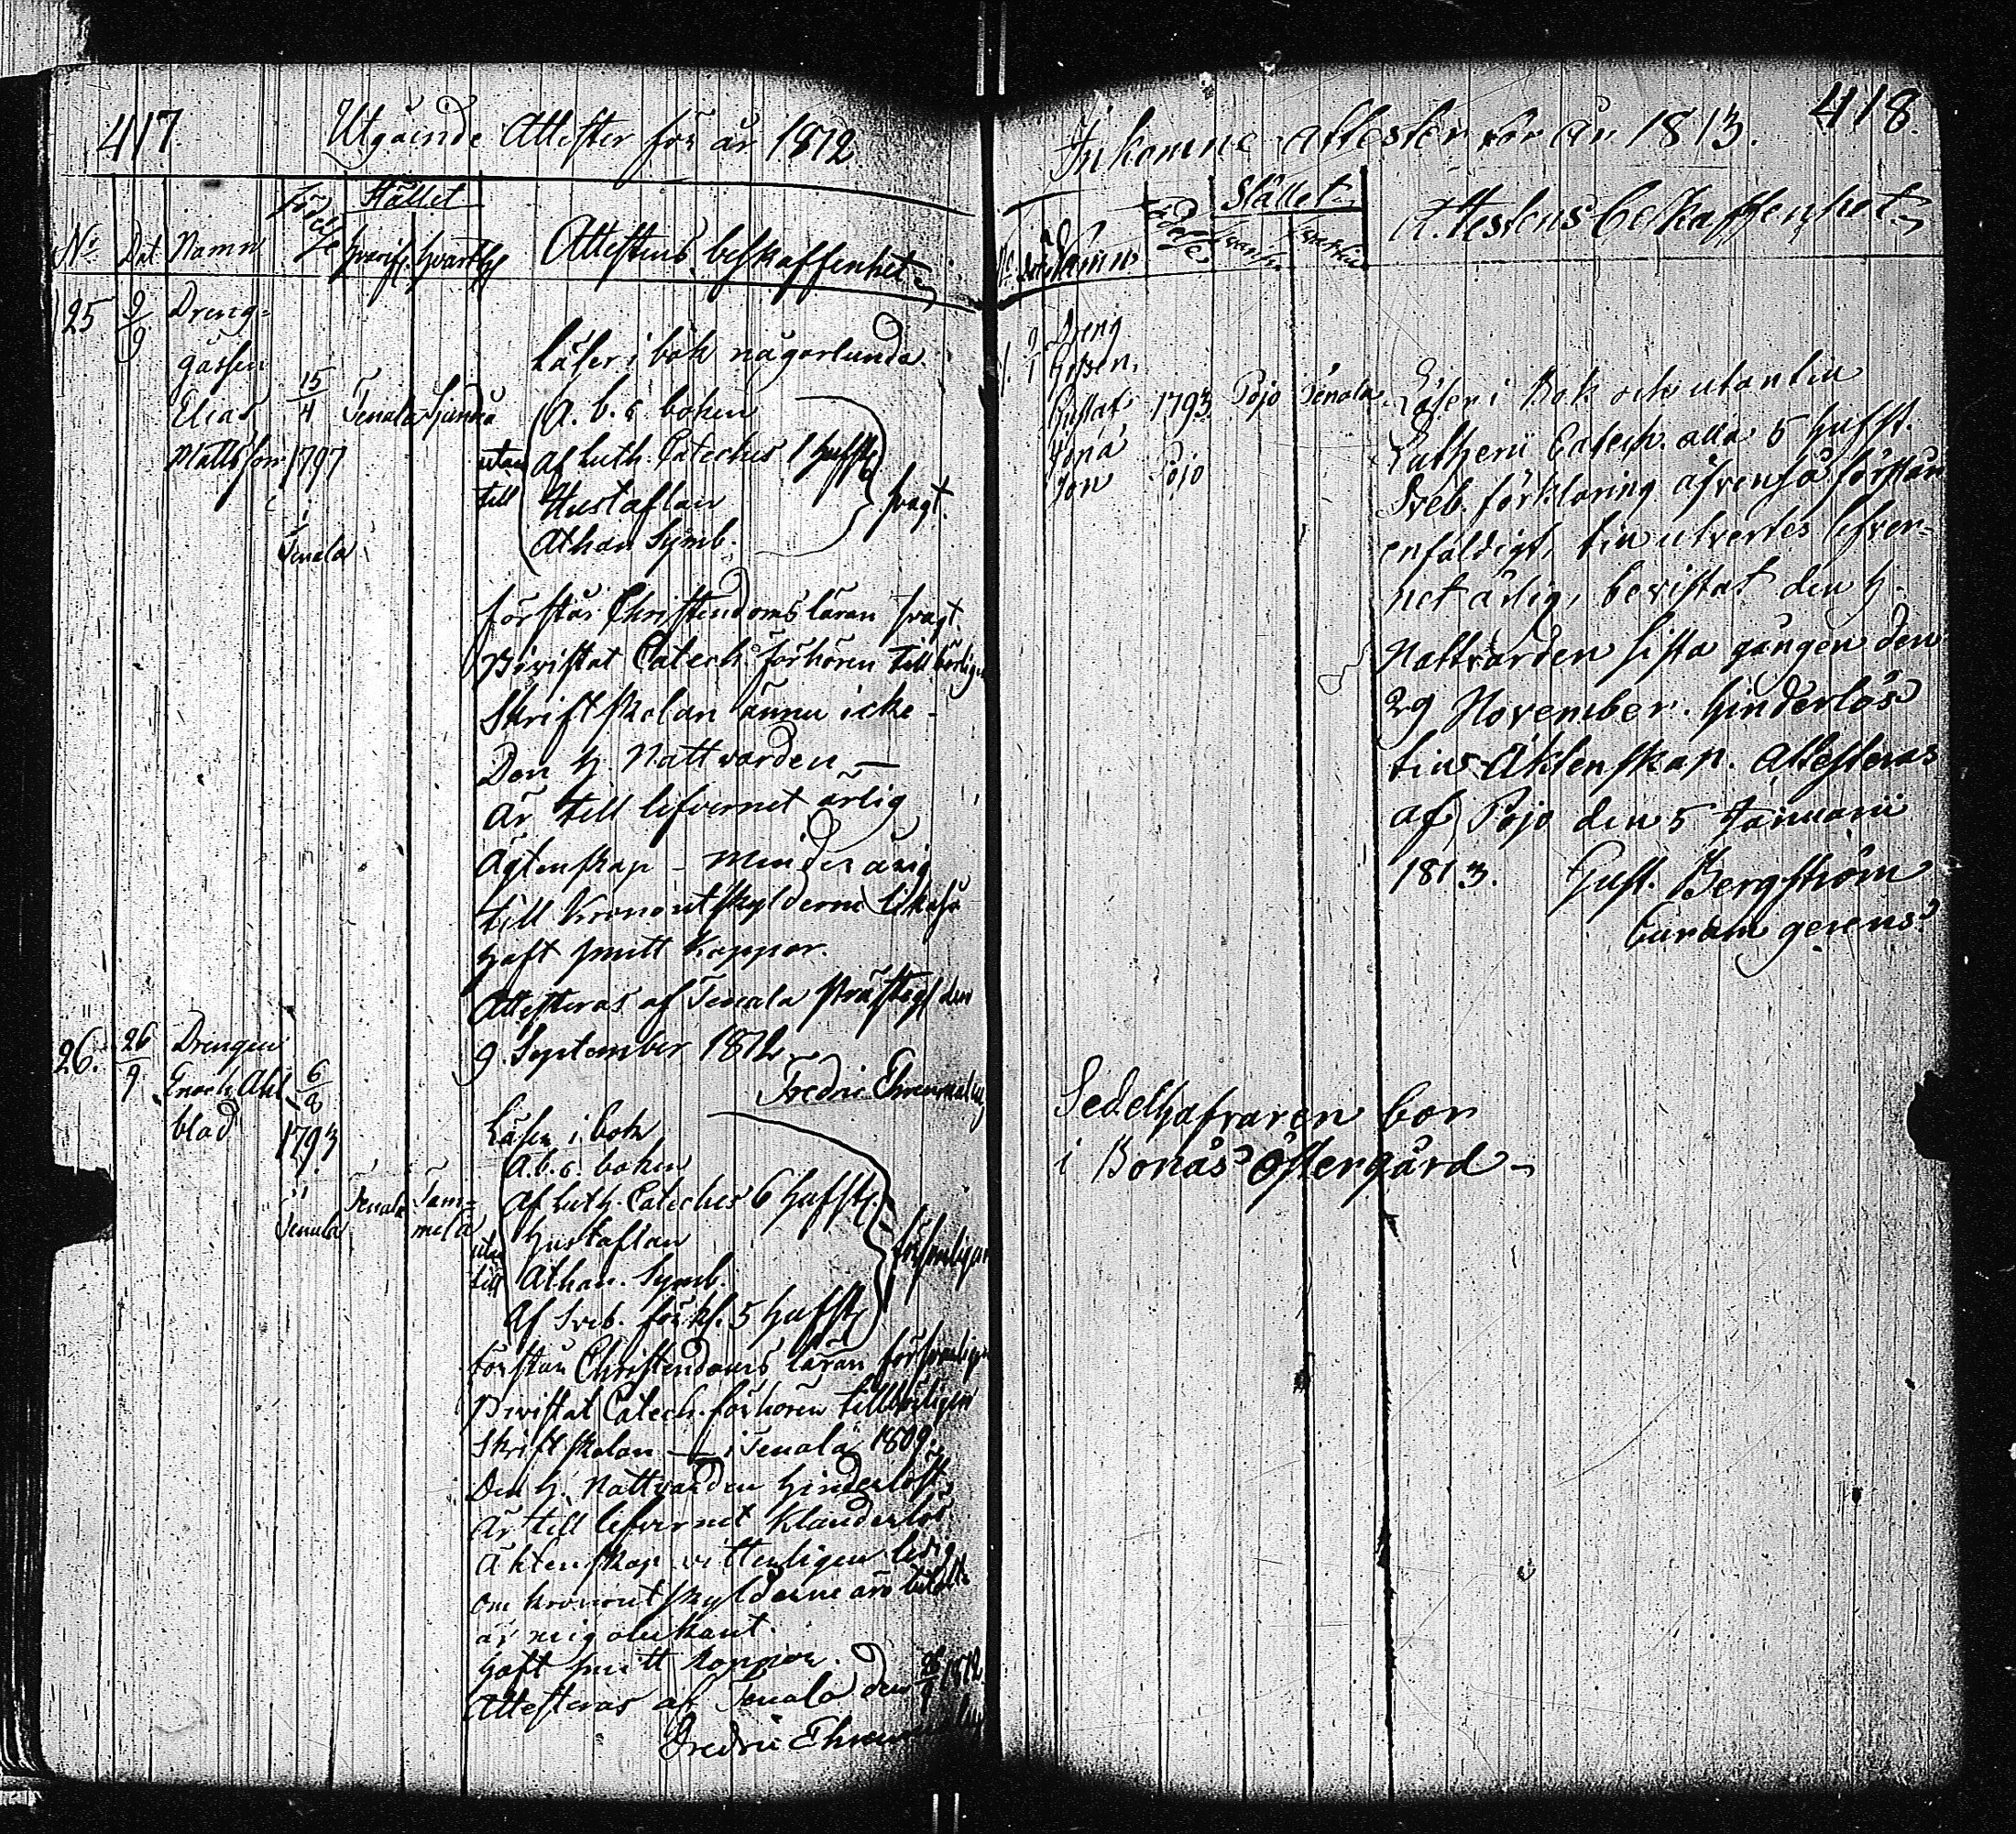 417.
Utgående Attester för år 1812
Stället
No Dat Namn Födelse hvarifr. hvarthf Attestens beskaffenhet
25 9/9 Dreng-
gåssen
Elias 15/4 Tenala Sjundeå
Mattsson 1797
i
Tenala
Läser i bok någorlunda
utan till
A. b. c. boken
af Luth. Catechus 1 hufst.
Hustaflan
Athan Symb.
svagt.
förstår Christendoms läran svagt
Bivistat Catech. förhören tillbörligen
Skriftskolan ännu icke -
Den H. Nattvarden —
Är till lefvernet ärlig
Ägtenskap - minderårig
till Kronoutskylderne likaså
haft smitt Koppor.
Attesteras af Tenala Prästeg. den
9 September 1812
Fredric Ehrenmalm
26. 26/9 Drengen
Enoch Ahl- 6/2
blad 1793
i
Tenala Tenala Tam-
mela
Läser i bok
utan till
A. b. c. boken
Af Luth. Cateches 6 hufst.
Hustaflan
Athan. Symb.
Af Sveb. förkl. 5 hufst
försvarligen
förstår Christendoms läran försvarligen
Bivistat Catech. förhören tillbörligen
Skriftskolan — i Tenala 1809.
Den H. Nattvarden hinderlöst
Är till lefvernet Klanderlös
Äktenskap vitterligen ledig
Om kronoutskylderne äro
är mig obekant.
haft smitt koppor.
Attesteras af Tenala den 26/9 1812.
Fredric Ehrenmalm
418.
Inkomne attester för år 1813.
Stället
No Dat Namn Födelse hvarifr. hvarthf. Attestens beskaffenhet
1. 9/1 Dreng
Gossen,
Gustaf 1793 Pojo Tenala
Jona
son Pojo
Läser i Bok och utantill
Lutherii Catech. alla 5 hufst.
Sveb. förklaring äfvenså förstår
enfäldigt, till utvertes lefver-
net ärlig, bevistat den H.
Nattvarden sista gången den
29 November. hinderlös
till Äktenskap. Attesteras
af Pojo den 5 Januarii
1813. Gust. Bergström
Curam gerens.
Sedelhafvaren bor
i Bonäs Östergård -